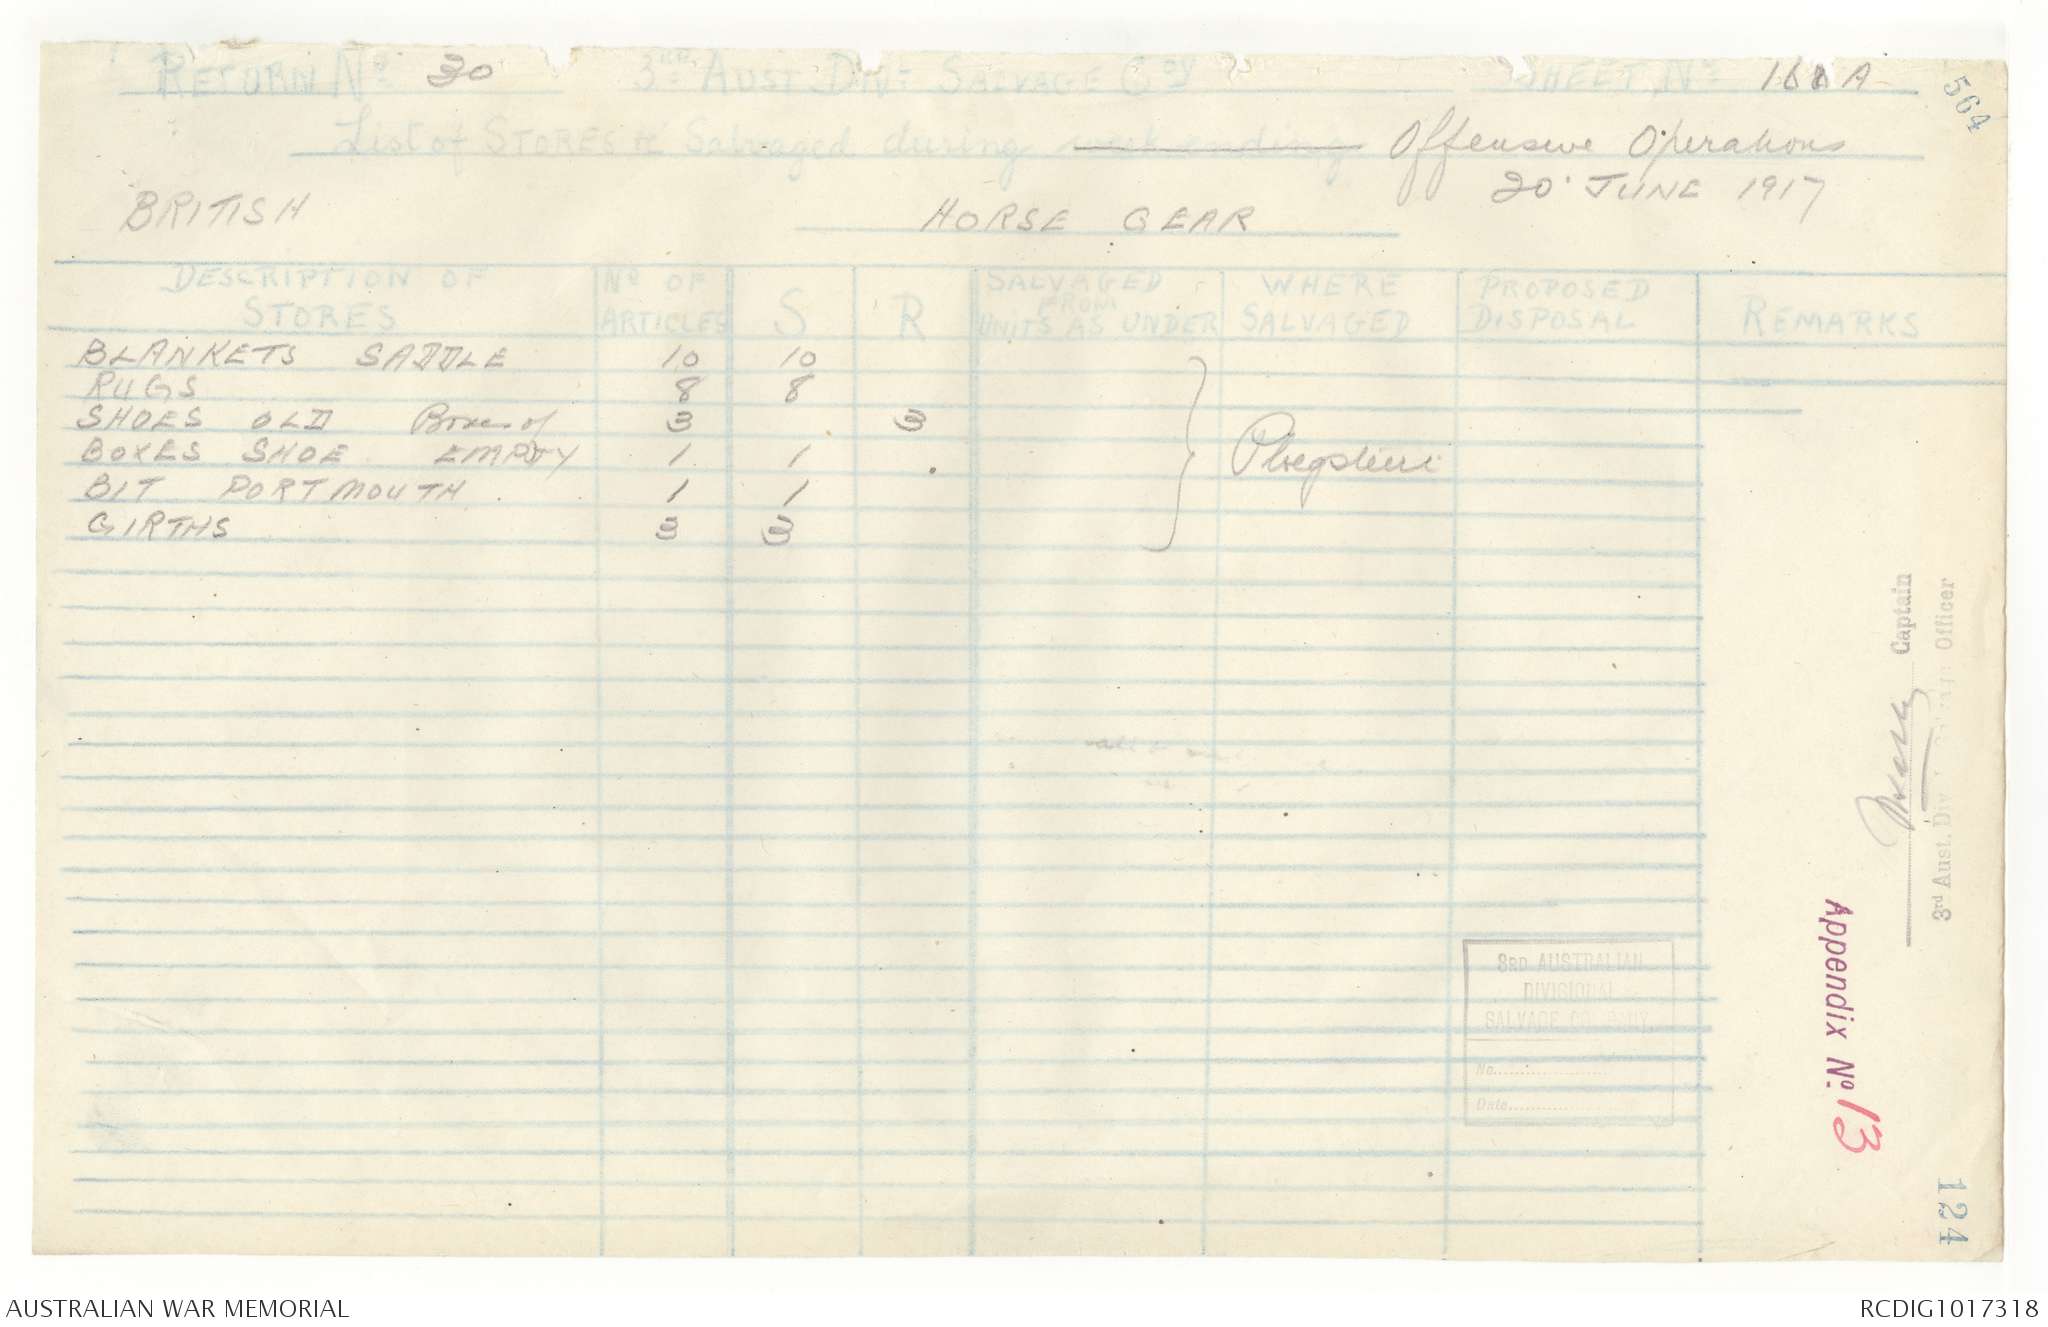 RETURN No 30 3RD AUST DIV: SALVAGE Coy SHEET No A
564
List of STORES &c Salvaged during week ending Offensive Operations
20 JUNE 1917
BRITISH HORSE GEAR
DESCRIPTION OF STORES No OF ARTICLES S R SALVAGED FROM UNITS AS UNDER WHERE SALVAGED PROPOSED DISPOSAL REMARKS
BLANKETS SADDLE 10 10
RUGS 8 8
SHOES OLD Boxes of 3 3
BOXES SHOE EMPTY 1 1
Ploegsteert
BIT PORTMOUTH 1 1
GIRTHS 3 3
Captain
3rd Aust. Div. Officer
3RD AUSTRALIAN
DIVISIONAL
SALVAGE COMPANY.
No.
Date
Appendix No. 13
124
AUSTRALIAN WAR MEMORIAL
RCDIG1017318